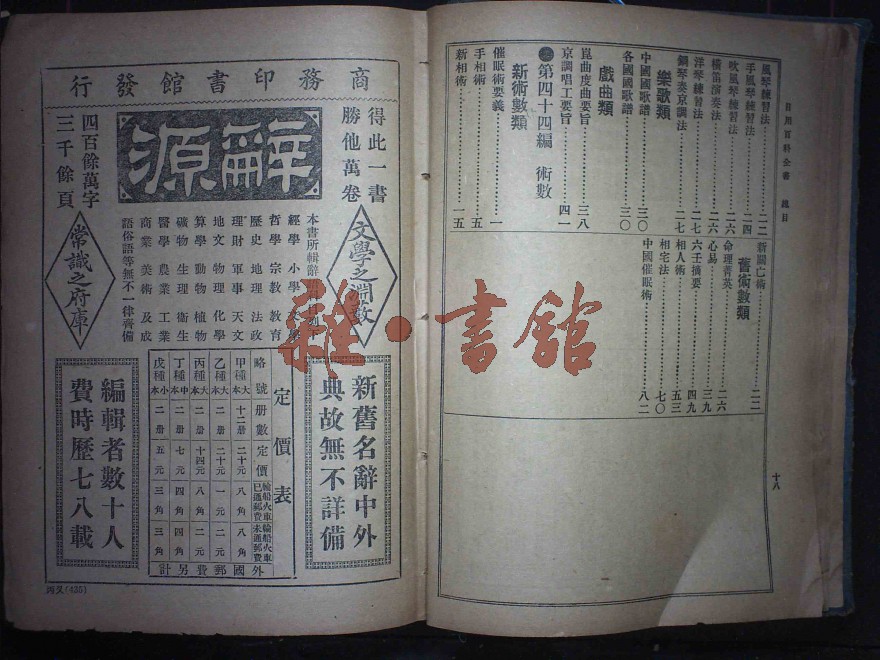 日用百科全書 總目
十八
風琴練習法……二二
手風琴練習法……二四
吹風琴練習法……二六
橫笛演奏法……二六
洋琴練習法……二七
鋼琴奏京調法……二七
樂歌類
中國國歌譜……三〇
各國國歌譜……三〇
戲曲類
崑曲度曲要旨……三八
京調唱工要旨……四一
第四十四編 術數
新術數類
催眠術要義……一
手相術……五
新相術……一五
新關亡術……二二
舊術數類
命理菁英……二六
心易……三九
六壬摘要……四九
相人術……五三
相宅法……七〇
中國催眠術……八二
商務印書館發行
得此一書
勝他萬卷
辭源
四百餘萬字
三千餘頁
文學之淵藪
經學 小學 文學
哲學 宗教 教育
歷史 地理 法政
理財 軍事 天文
地文 物理 化學
算學 動物 植物
礦物 生理 衛生
醫學 農業 工業
商業 美術 及成
語俗語等無不一律齊備
常識之府庫
新舊名辭中外
典故無不詳備
定價表
略號 册數 定價 輪船火車已通郵費 輪船火車未通郵費
甲種大本 十二册 二十元 八角 八角
乙種大本 二册 二十元 一元 二元
丙種大本 二册 十四元 八角 二元
丁種中本 二册 七元 四角 四角
戊種小本 二册 五元 三角 三角
外國郵費另計
編輯者數十人
費時歷七八載
(436)
雜·書館